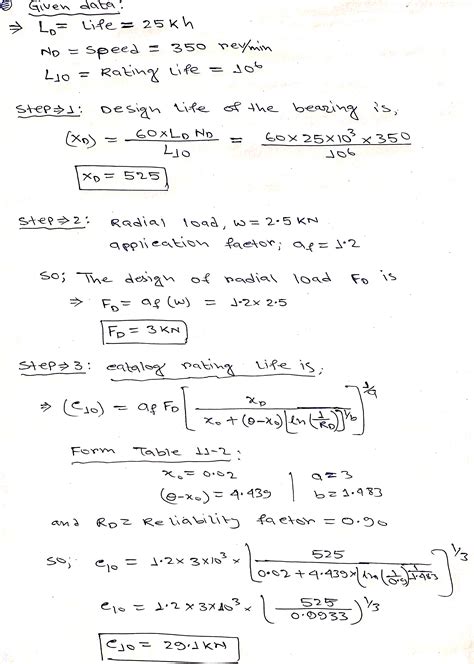 Given data:
⇒ L_D = Life = 25 kh
N_D = Speed = 350 rev/min
L_10 = Rating Life = 10^6
Step⇒1: Design Life of the bearing is,
(x_D) = 60×L_D N_D / L_10 = 60×25×10^3×350 / 10^6
x_D = 525
Step⇒2: Radial load, w = 2.5 KN
application factor, af = 1.2
so; The design of radial load F_D is
⇒ F_D = af (w) = 1.2×2.5
F_D = 3 KN
Step⇒3: catalog rating Life is,
⇒ (C_10) = af F_D [ x_D / x_0 + (θ-x_0) [ln(1/R_D)]^1/b ]^1/a
Form Table 11-2:
x_0 = 0.02 | a = 3
(θ-x_0) = 4.439 | b = 1.483
and R_D = Reliability factor = 0.90
so; C_10 = 1.2×3×10^3 × [ 525 / 0.02 + 4.439×[ln(1/0.9)]^1/1.483 ]^1/3
C_10 = 1.2×3×10^3 × ( 525 / 0.9933 )^1/3
C_10 = 29.1 KN